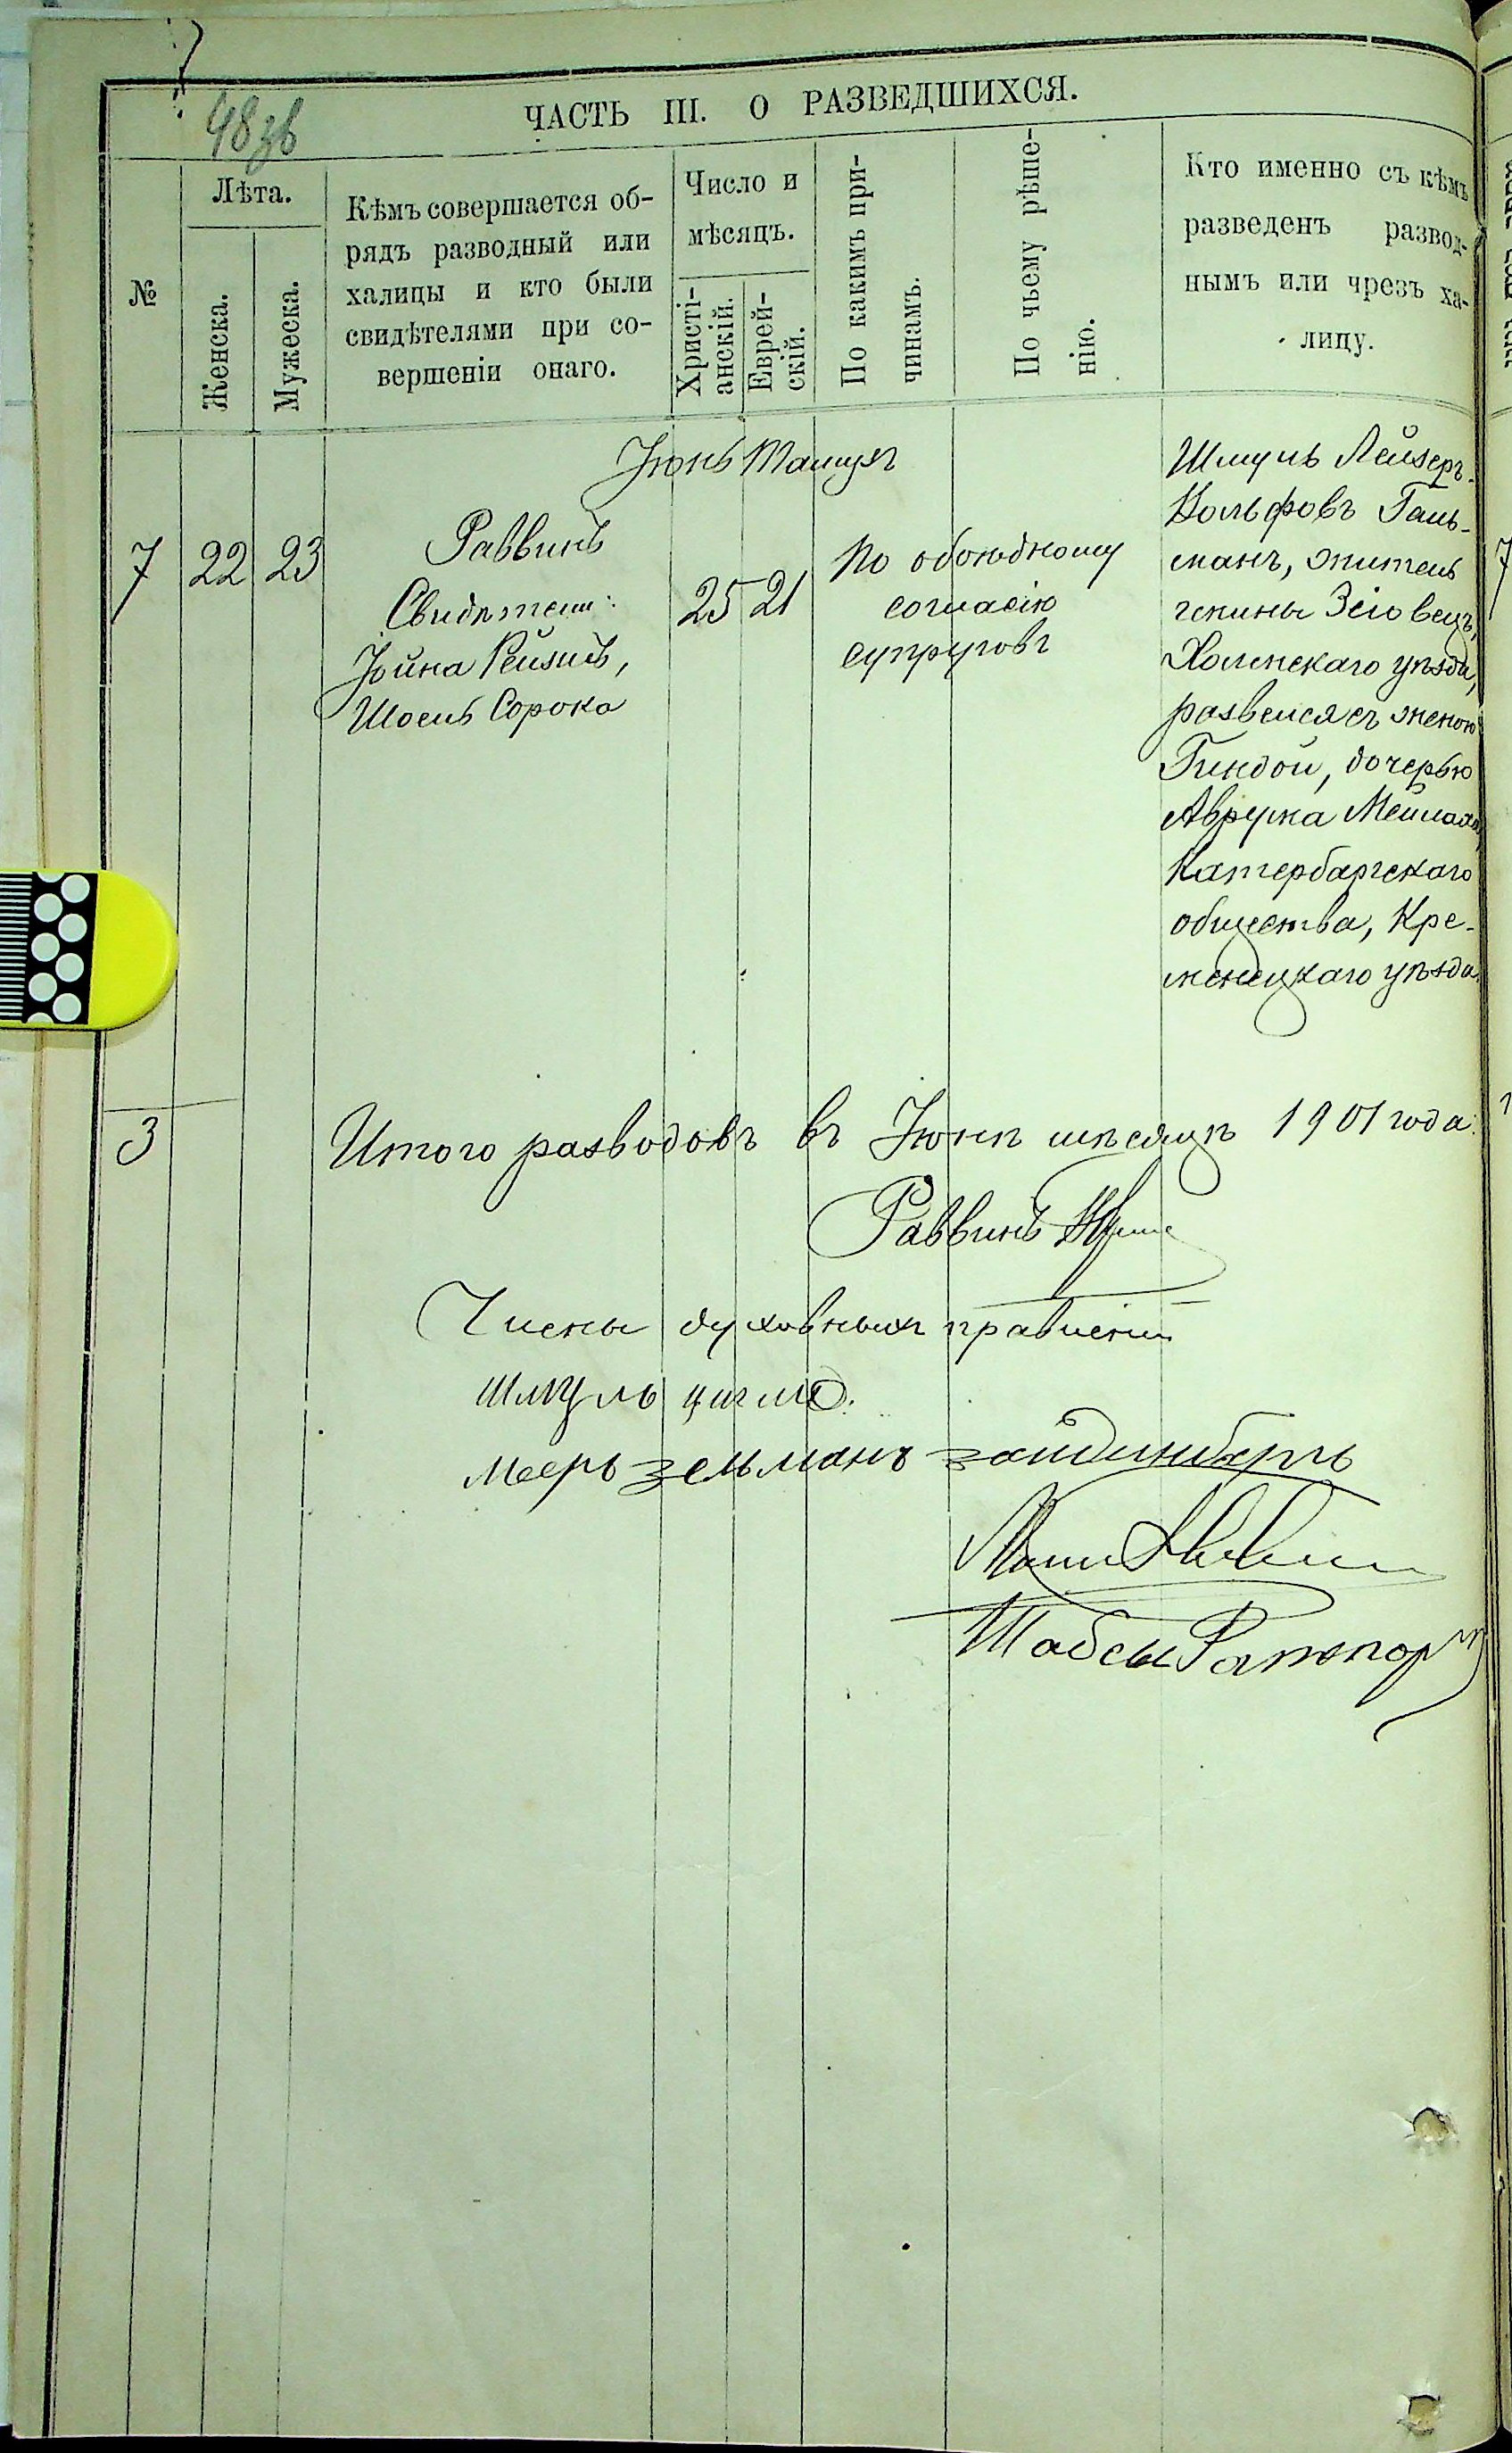 48 зв
ЧАСТЬ III. О РАЗВЕДШИХСЯ.
№
Лѣта.
Женска.
Мужеска.
Кѣмъ совершается об-
рядъ разводный или
халицы и кто были
свидѣтелями при со-
вершеніи онаго.
Число и
мѣсяцъ.
Христі-
анскій.
Еврей-
скій.
По какимъ при-
чинамъ.
По чьему рѣше-
нію.
Кто именно съ кѣмъ
разведенъ развод-
нымъ или чрезъ ха-
лицу.
Іюнь Тамузъ
7 22 23
Раввинъ
Свидѣтели:
Іойна Рейзисъ,
Шоель Сорока
25 21
По обоюдному
согласію
супруговъ
Шмуль Лейзеръ-
Вольфовъ Галь-
манъ, житель
гмины
Холмскаго уѣзда,
развелся съ женою
Гиндой, дочерью
Аврума
Катербаргскаго
общества, Кре-
менецкаго уѣзда.
3 Итого разводовъ въ Іюнѣ мѣсяцѣ 1901 года.
Раввинъ
Члены духовныхъ правленій
Шмуль
Мееръ Зельманъ Зайдинбергъ
Шабсы Рапопортъ